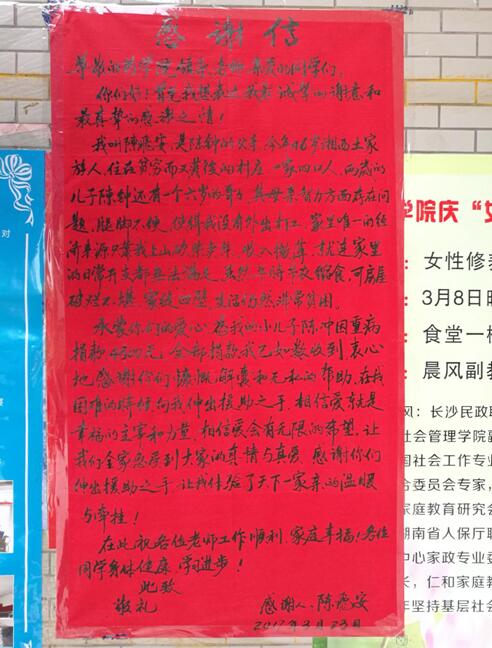 感谢信
尊敬的药学院领导、老师、亲爱的同学们:
你们好!首先我想表达我最诚挚的谢意和
最真挚的感谢之情!
我叫陈飞安,是陈钟的父亲,今年46岁湘西土家
族人,住在贫穷而又黄俊的村庄,一家四口人,两岁的
儿子陈钟还有一个六岁的哥哥,其母亲智力方面存在问
题,腿脚不便,使得我没有外出打工,家里唯一的经
济来源只靠我上山砍柴卖柴,收入微薄,就连家里
的日常开支都无法满足,虽然年脖节衣缩食,可房屋
破烂不堪,家徒四壁,生活仍然非常贫困。
承蒙你们的爱心,为我的小儿子陈冲因重病
捐款4300元,全部捐款我已如数收到,衷心
地感谢你们慷慨解囊和无私的帮助,在我
困难的时候向我伸出援助之手,相信爱就是
幸福的主宰和力量,相信爱会有无限的希望,让
我们全家感受到大家的真情与真爱,感谢你们
伸出援助之手,让我体验了天下一家亲的温暖
与牵挂!
在此祝各位老师工作顺利,家庭幸福!各位
同学身体健康,学习进步!
此致
敬礼
感谢人:陈飞安
2017年3月23日
对
学院庆“女
女性修养
3月8日
食堂一楼
晨风副教
风:长沙民政职
社会管理学院副
国社会工作专业
合委员会专家,
家庭教育研究会
湖南省人保厅职
中心家政专业委
长,仁和家庭教
年坚持基层社会